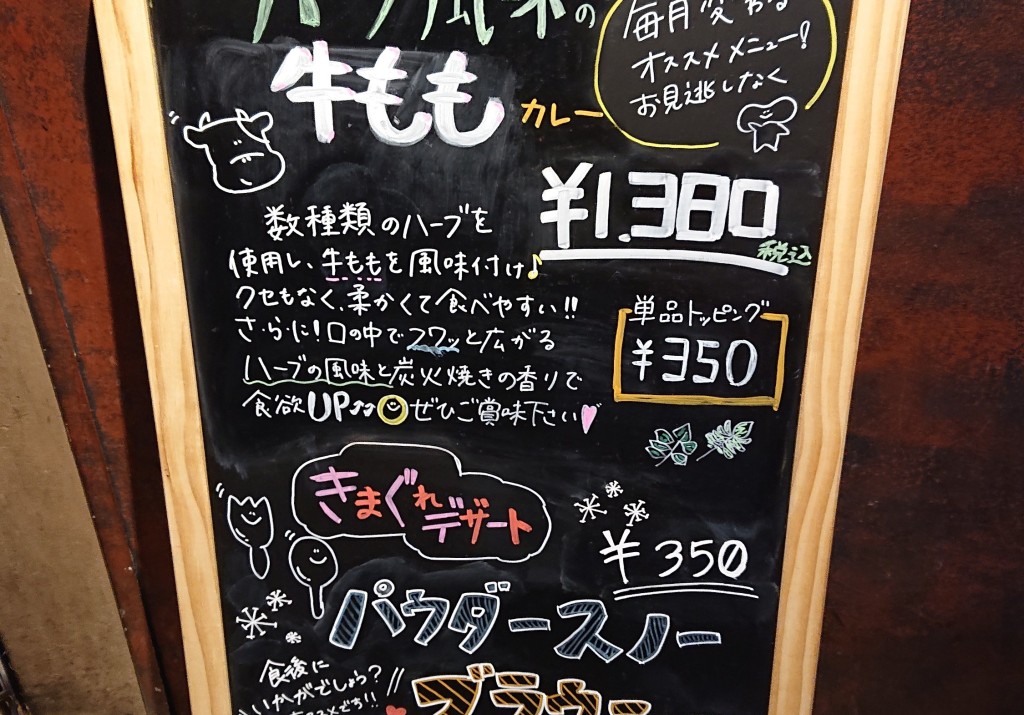 ハーブ風味の
牛ももカレー
毎月変わる
オススメメニュー!
お見逃しなく
¥1,380
税込
数種類のハーブを
使用し、牛ももを風味付け♪
クセもなく、柔かくて食べやすい!!
さ・ら・に!口の中でフワッと広がる
ハーブの風味と炭火焼きの香りで
食欲UP♪♪ぜひご賞味下さい♥
単品トッピング
¥350
きまぐれデザート
¥350
パウダースノー
ブラウニー
食後に
いかがでしょう?
オススメです!!